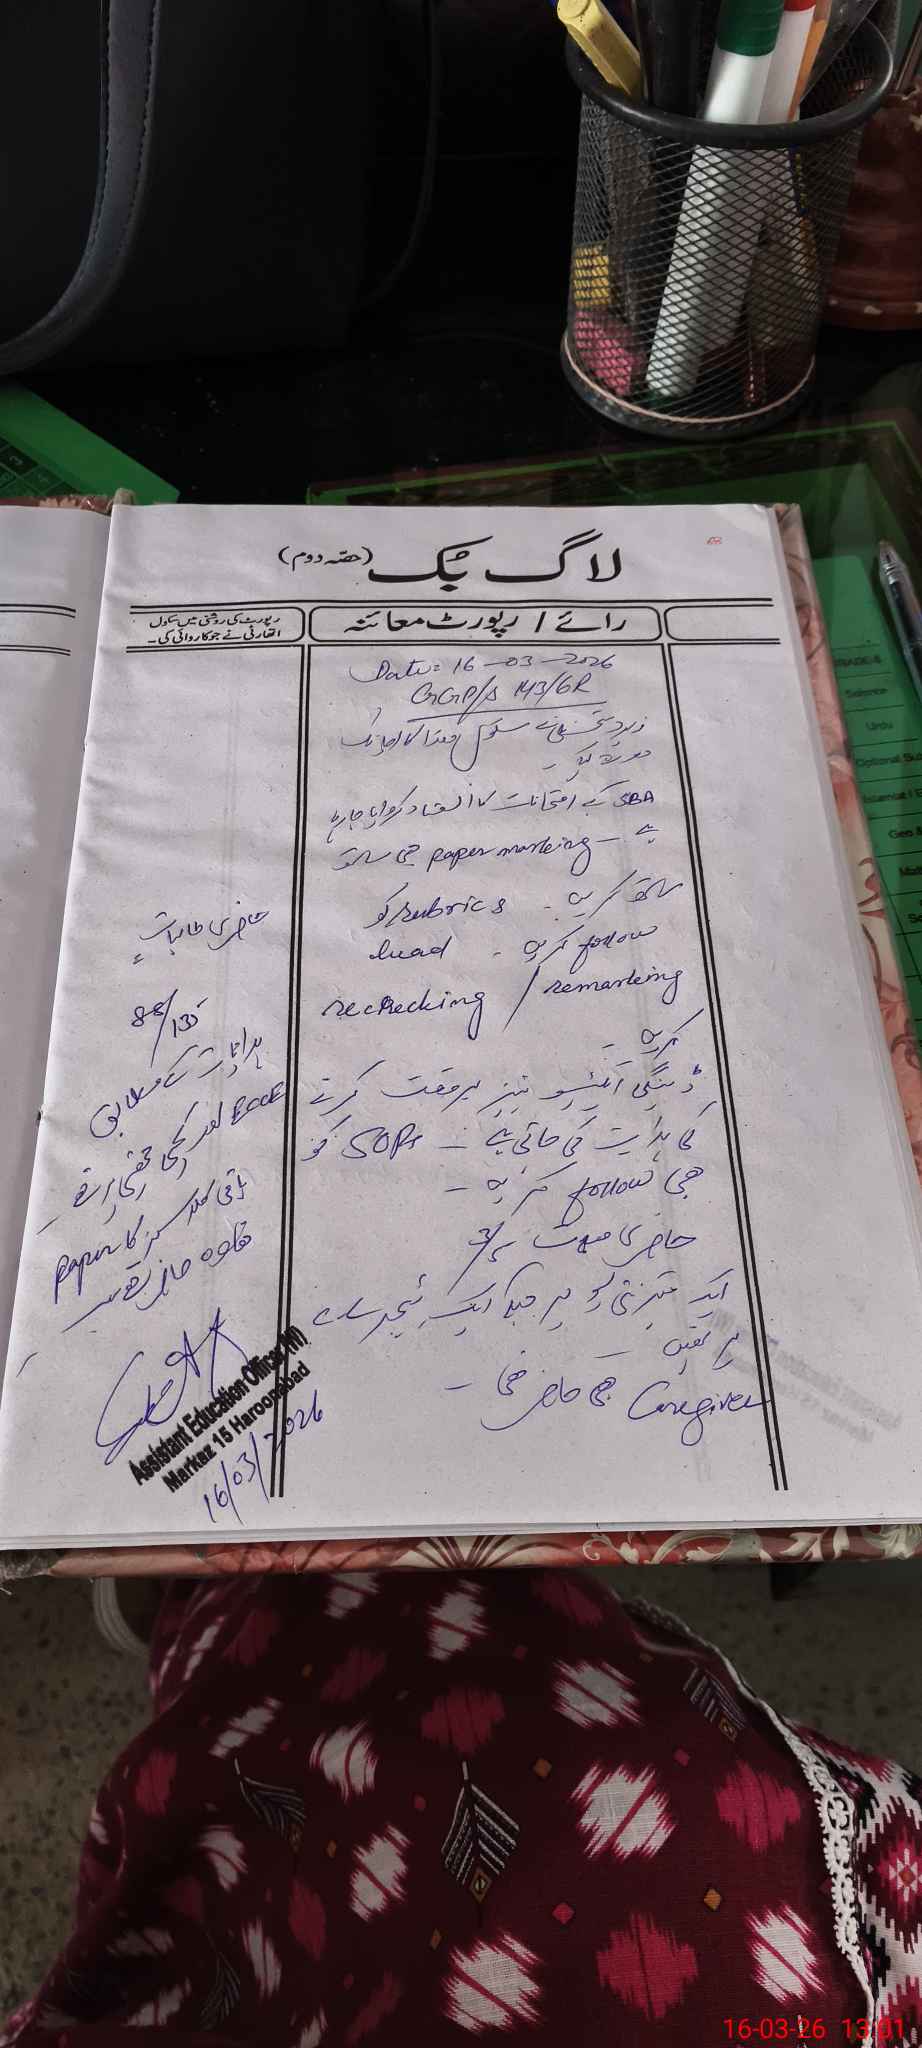 لاگ بُک (حصّہ دوم)
رائے / رپورٹ معائنہ
رپورٹ کی روشنی میں سکول
اتھارٹی نے جو کاروائی کی۔
Date: 16-03-2026
GGP/S 143/6R
زیر دستخطی نے سکول ھذا کا اچانک
دورہ کیا۔
SBA کے امتحانات کا انعقاد کروایا جا رہا
ہے۔ paper marking بھی ساتھ
ساتھ کریں۔ rubrics کو
follow کریں۔ head
rechecking / remarking
کریں۔
ڈینگی ایکٹیویٹیز بروقت کرنے
کی ہدایت کی جاتی ہے۔ SOPs کو
بھی follow کریں۔
حاضری 3/5
ایک ٹیچر
پر تھیں۔
Caregiver بھی حاضر تھی۔
حاضری طالبات
88/135
ہدایات کے مطابق
ECCE اور کچی
باقی کلاسز کا paper
علاوہ حاضر
Assistant Education Officer (W)
Markaz 15 Haroonabad
16/03/2026
GRADE-8
Science
Urdu
16-03-26 13:01